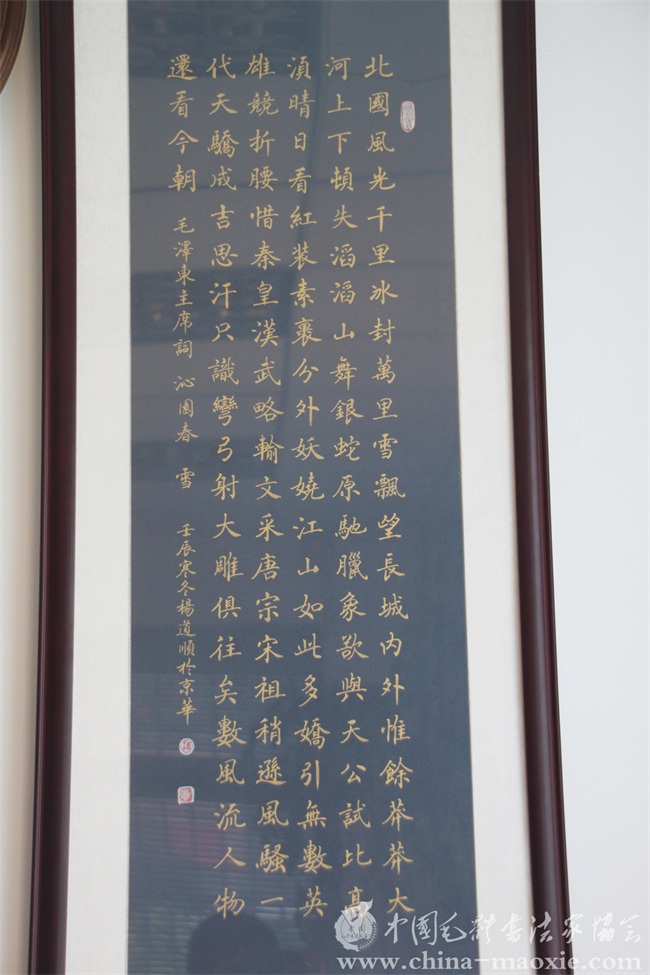 北國風光千里冰封萬里雪飄望長城内外惟餘莽莽大
河上下頓失滔滔山舞銀蛇原馳臘象欲與天公試比高
湏晴日看紅裝素裹分外妖嬈江山如此多嬌引無數英
雄競折腰惜秦皇漢武略輸文采唐宗宋祖稍遜風騷一
代天驕成吉思汗只識彎弓射大雕俱往矣數風流人物
還看今朝 毛澤東主席詞 沁園春 雪 壬辰寒冬楊道順於京華
中國毛體书法家協会
www.china-maoxie.com